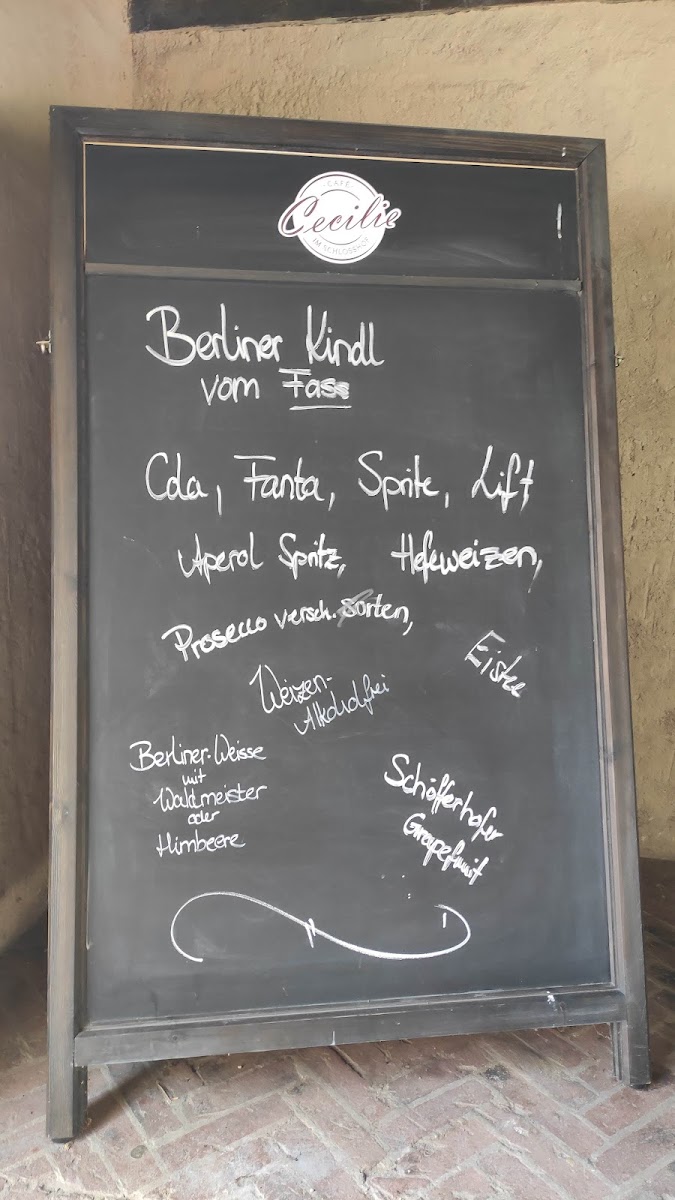 CAFÉ
Cecilie
IM SCHLOSSHOF
Berliner Kindl
vom Fass
Cola, Fanta, Sprite, Lift
Aperol Spritz, Hefeweizen,
Prosecco versch. Sorten,
Eistee
Weizen-
Alkoholfrei
Berliner-Weisse
mit
Waldmeister
oder
Himbeere
Schöfferhofer
Grapefruit